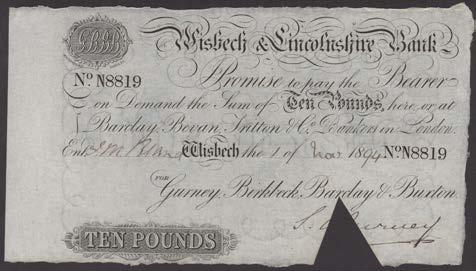 Wisbech & Lincolnshire Bank
No. N8819 Promise to pay the Bearer
on Demand the Sum of Ten Pounds, here, or at
Barclay, Bevan, Tritton & Co. Bankers in London.
Entd. Wisbech the 1 of Novr. 1894 No. N8819
FOR Gurney, Birkbeck, Barclay & Buxton.
TEN POUNDS